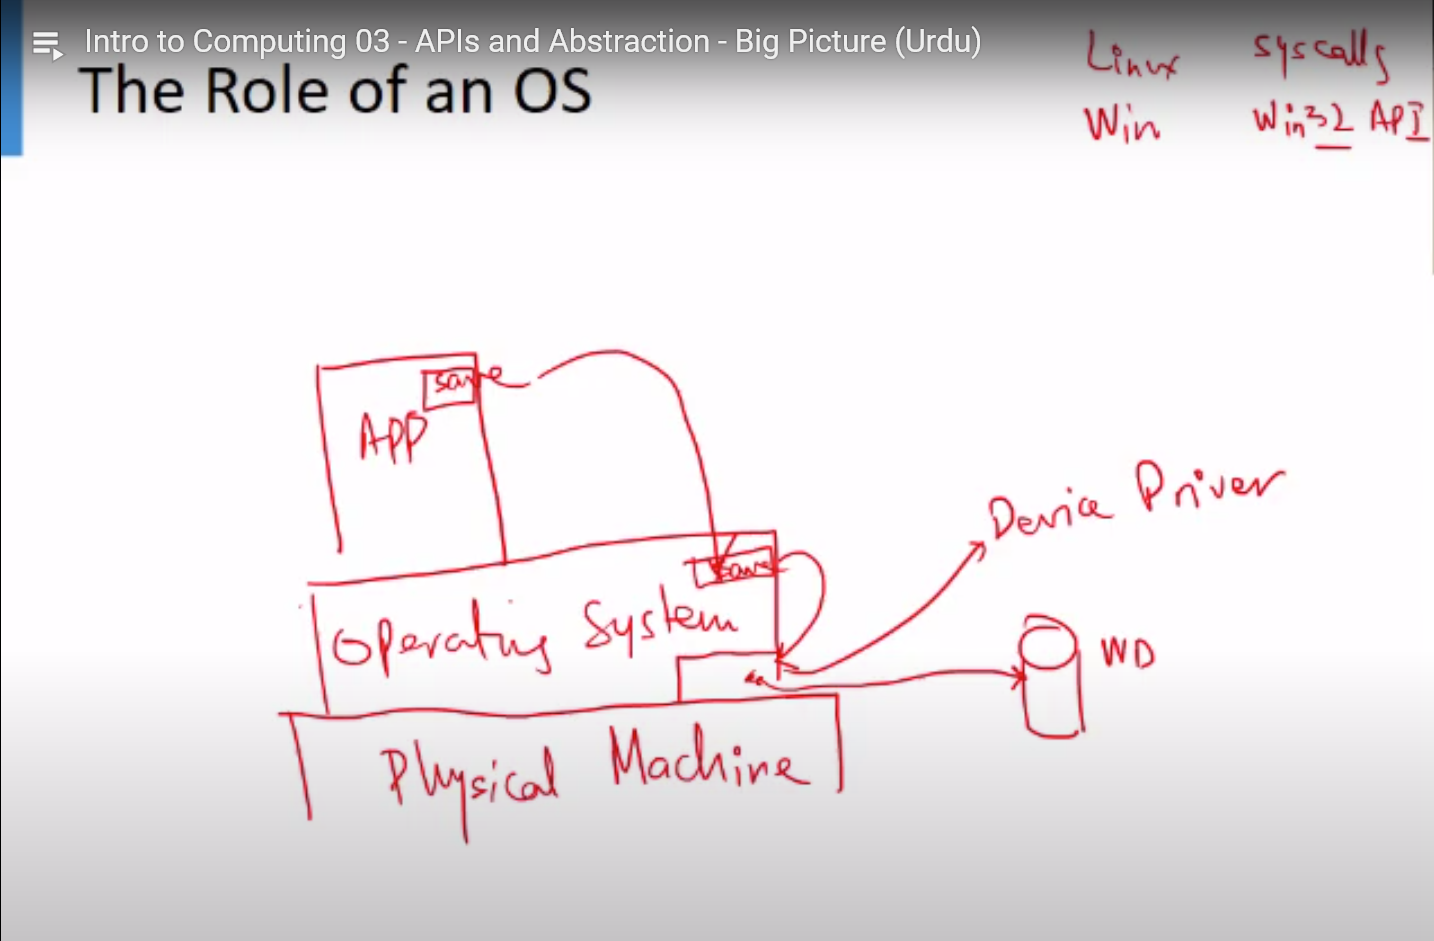 Intro to Computing 03 - APIs and Abstraction - Big Picture (Urdu)
The Role of an OS
Linux syscalls
Win Win32 API
save
APP
save
Operating System
Device Driver
WD
Physical Machine